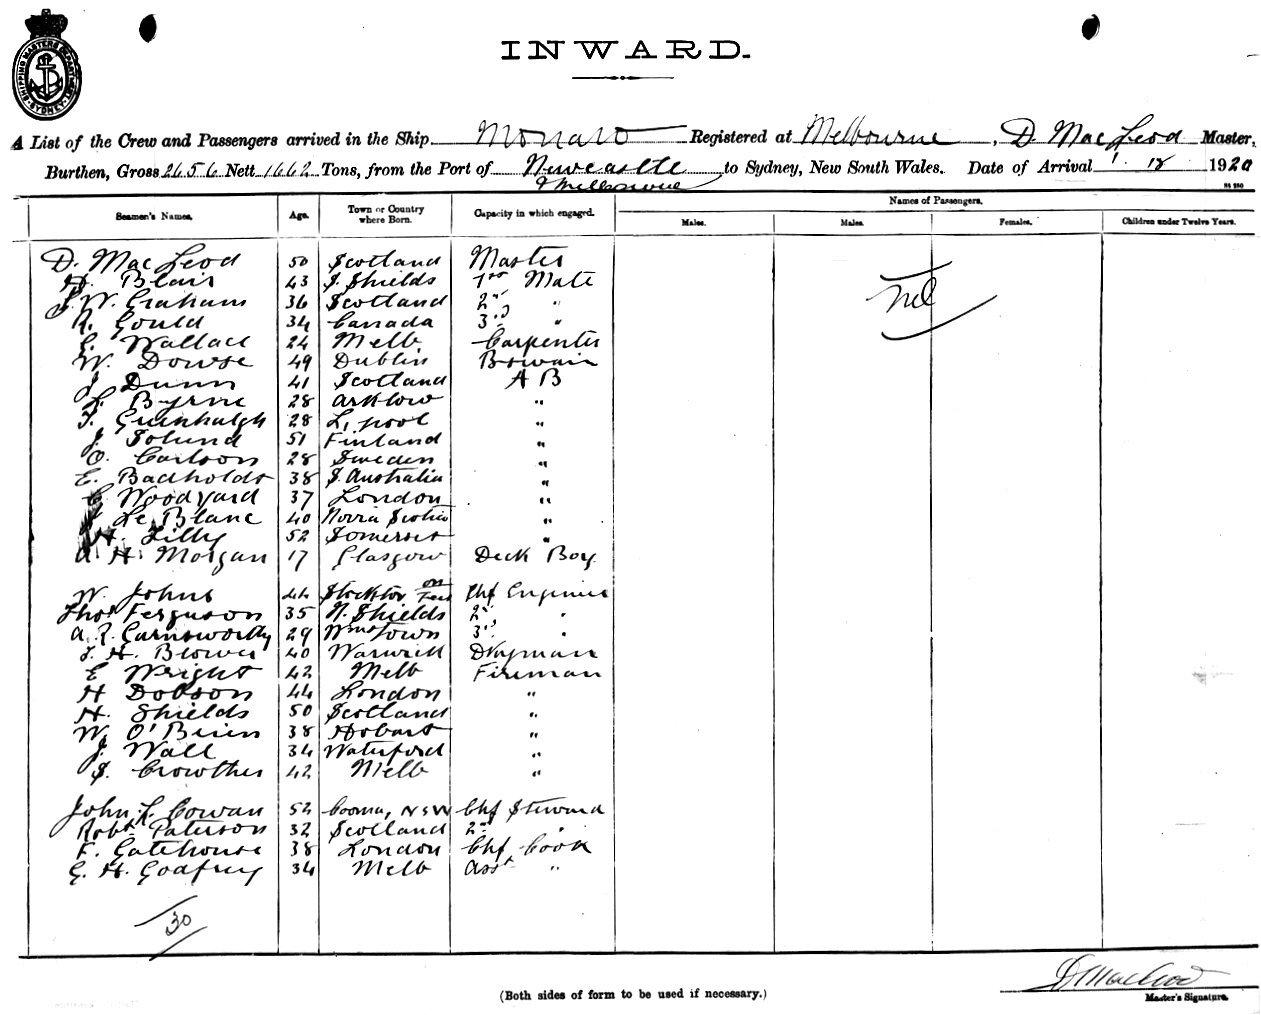 SHIPPING MASTERS DEPARTMENT SYDNEY
INWARD.
A List of the Crew and Passengers arrived in the Ship Monaro Registered at Melbourne, D MacLeod Master,
Burthen, Gross 2656 Nett 1662 Tons, from the Port of Newcastle to Sydney, New South Wales. Date of Arrival 1. 12 1920
& Melbourne
Seamen's Names. Age. Town or Country where Born. Capacity in which engaged. Names of Passengers.
Males. Males. Females. Children under Twelve Years.
D. MacLeod 50 Scotland Master
H. Blair 43 S. Shields 1st Mate nil
J. W. Graham 36 Scotland 2nd "
R. Gould 34 Canada 3rd "
Wallace 24 Melb Carpenter
W. Dowse 49 Dublin Boswain
J. Dunn 41 Scotland A B
L. Byrne 28 Arklow "
T. Greenhalgh 28 L.pool "
J. Solund 51 Finland "
O. Carlson 28 Sweden "
E. Badholdt 38 S. Australia "
C. Woodyard 37 London "
J. Le Blanc 40 Novia Scotia "
H. Lilly 52 Somerset "
A. H. Morgan 17 Glasgow Deck Boy
W. Johns 44 Stockton on Tees Chf Engineer
Thos Ferguson 35 N. Shields 2nd "
A. R. Garnsworthy 29 Wmstown 3rd "
J. H. Blower 40 Warwick Dkyman
E Wright 42 Melb Fireman
H Dobson 44 London "
H. Shields 50 Scotland "
W. O'Brien 38 Hobart "
J. Wall 34 Waterford "
S. Crowther 42 Melb "
John L. Cowan 52 Cooma, NSW Chf Steward
Robt Paterson 32 Scotland 2nd "
F. Gatehouse 38 London Chf Cook
G. H. Godfrey 34 Melb Asst "
30
D MacLeod
Master's Signature.
(Both sides of form to be used if necessary.)